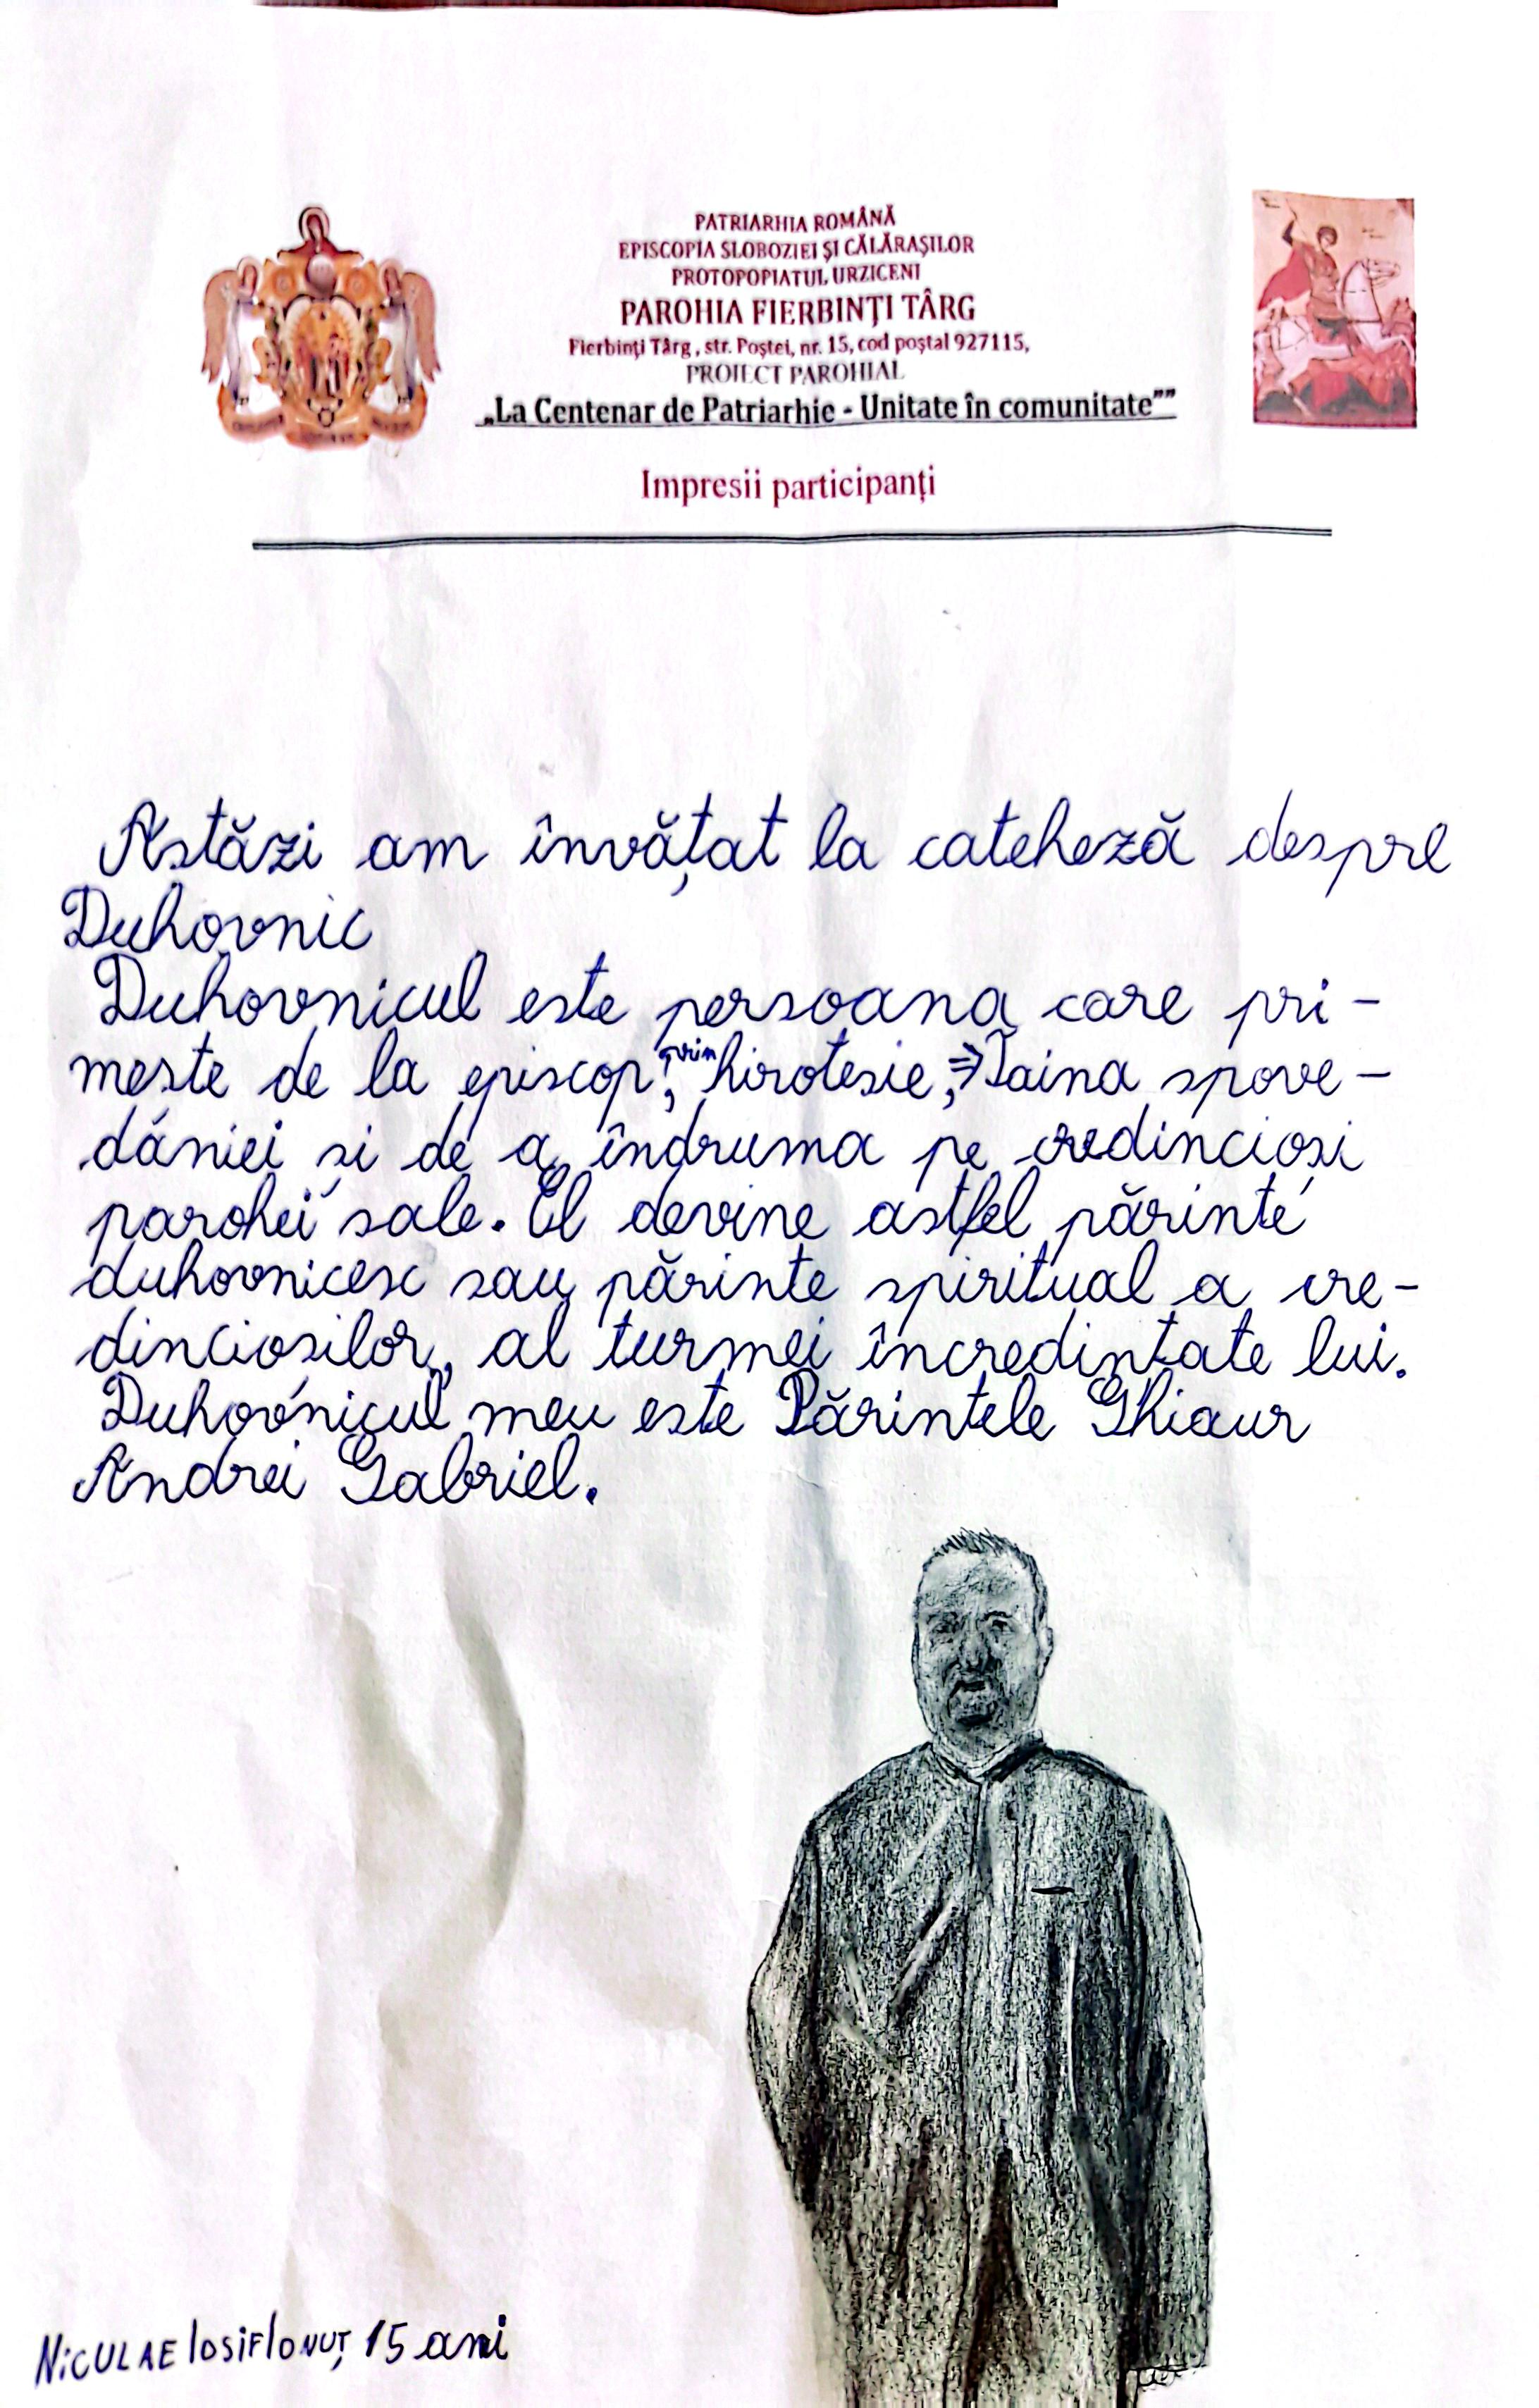 PATRIARHIA ROMÂNĂ
EPISCOPIA SLOBOZIEI ŞI CĂLĂRAŞILOR
PROTOPOPIATUL URZICENI
PAROHIA FIERBINŢI TÂRG
Fierbinţi Târg , str. Poştei, nr. 15, cod poştal 927115,
PROIECT PAROHIAL
„La Centenar de Patriarhie - Unitate în comunitate””
Impresii participanţi
Astăzi am învățat la cateheză despre
Duhovnic
Duhovnicul este persoana care pri-
meste de la episcop, prin hirotesie, => Taina spove-
dăniei și de a îndruma pe credincioși
parohei sale. El devine astfel părinte
duhovnicesc sau părinte spiritual a cre-
dincioșilor, al turmei încredințate lui.
Duhovnicul meu este Părintele Ghiaur
Andrei Gabriel.
NiCULAE IOSiF IONUȚ, 15 ani